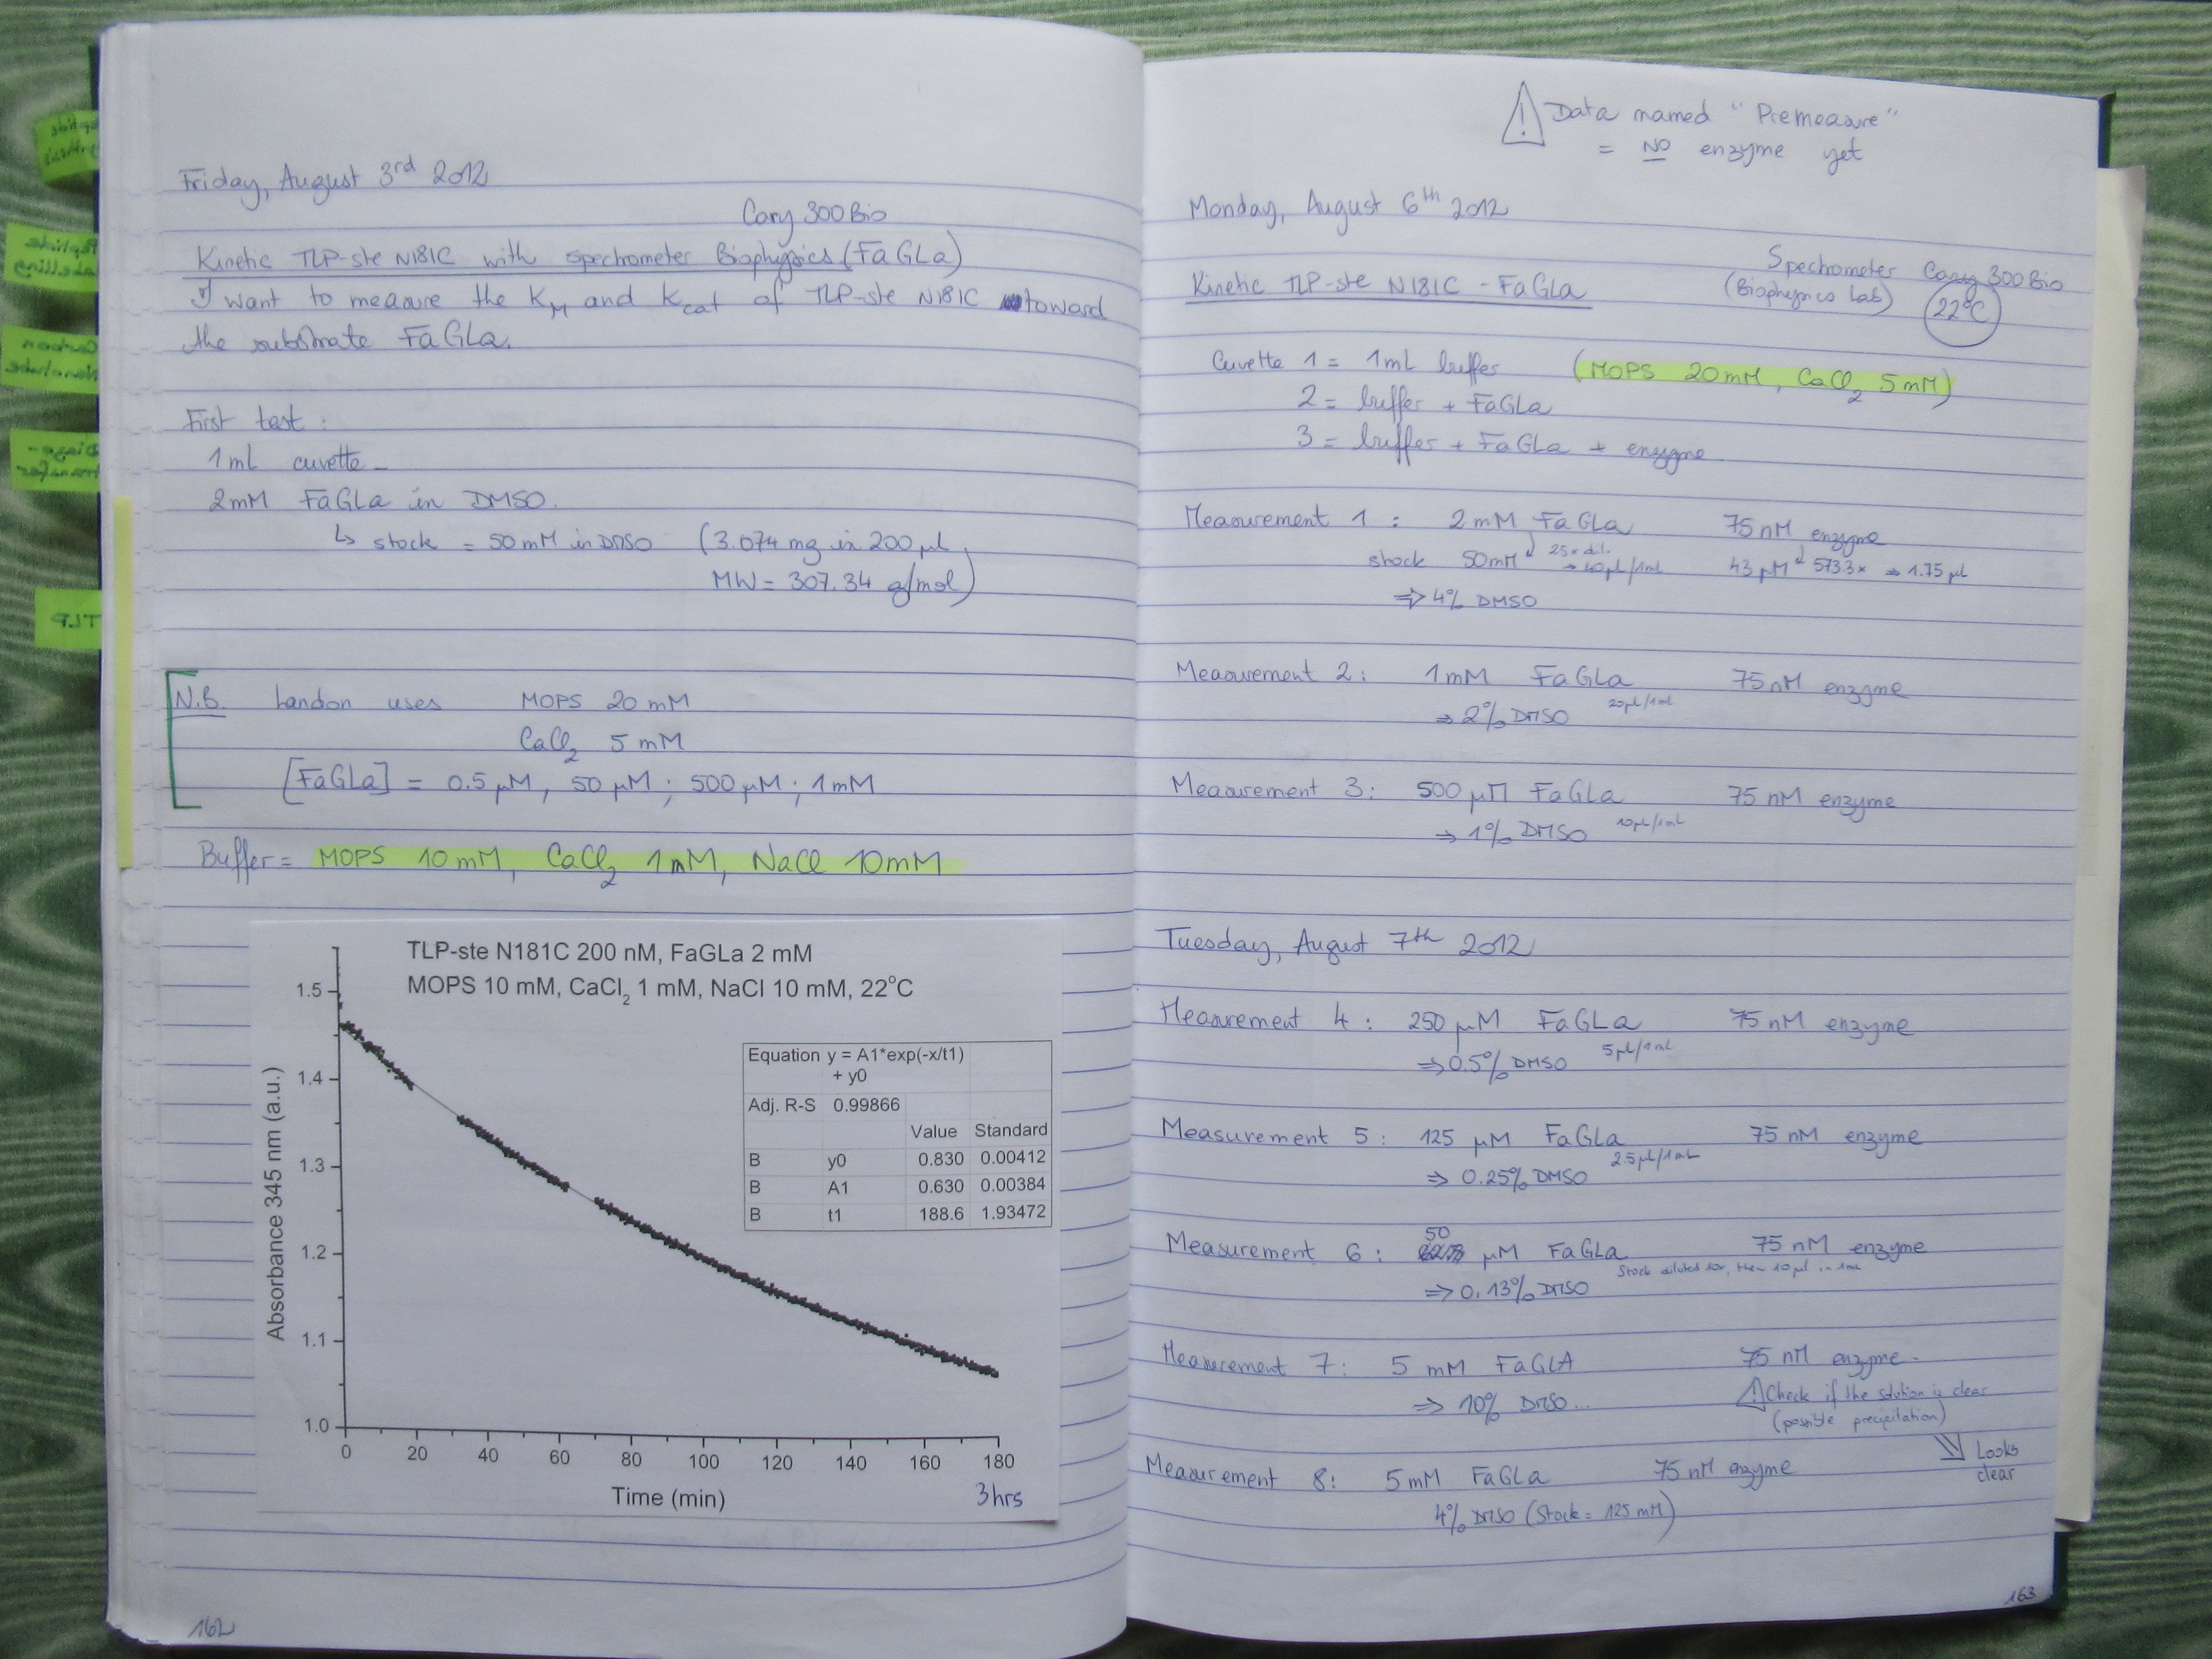 Friday, August 3rd 2012
Cary 300 Bio
Kinetic TLP-ste N181C with spechometer Biophysics (FaGLa)
I want to measure the KM and kcat of TLP-ste N181C toward
the substrate FaGLa.
First test :
1 mL cuvette
2mM FaGLa in DMSO.
↳ stock = 50 mM in DMSO (3.074 mg in 200 µl
MW = 307.34 g/mol)
N.B. Landon uses MOPS 20 mM
CaCl2 5 mM
[FaGLa] = 0.5 µM, 50 µM ; 500 µM ; 1 mM
Buffer = MOPS 10 mM, CaCl2 1 mM, NaCl 10 mM
TLP-ste N181C 200 nM, FaGLa 2 mM
MOPS 10 mM, CaCl2 1 mM, NaCl 10 mM, 22°C
Absorbance 345 nm (a.u.)
1.5
1.4
1.3
1.2
1.1
1.0
Equation y = A1*exp(-x/t1)
+ y0
Adj. R-S 0.99866
Value Standard
B y0 0.830 0.00412
B A1 0.630 0.00384
B t1 188.6 1.93472
0 20 40 60 80 100 120 140 160 180
Time (min)
3 hrs
162
⚠ Data named "Premeasure"
= NO enzyme yet
Monday, August 6th 2012
Kinetic TLP-ste N181C - FaGLa
Spechometer Cary 300 Bio
(Biophysics Lab) 22°C
Cuvette 1 = 1 mL buffer (MOPS 20 mM, CaCl2 5 mM)
2 = buffer + FaGLa
3 = buffer + FaGLa + enzyme
Measurement 1 : 2 mM FaGLa 75 nM enzyme
stock 50mM 25x dil. → 40µl/1mL 43 µM 573.3x ⇒ 1.75 µl
⇒ 4% DMSO
Measurement 2 : 1 mM FaGLa 75 nM enzyme
⇒ 2% DMSO 20µl/1mL
Measurement 3 : 500 µM FaGLa 75 nM enzyme
⇒ 1% DMSO 10µl/1mL
Tuesday, August 7th 2012
Measurement 4 : 250 µM FaGLa 75 nM enzyme
⇒ 0.5% DMSO 5µl/1mL
Measurement 5 : 125 µM FaGLa 75 nM enzyme
⇒ 0.25% DMSO 2.5µl/1mL
Measurement 6 : 50 µM FaGLa 75 nM enzyme
Stock diluted 10x, then 10 µl in 1mL
⇒ 0.13% DMSO
Measurement 7 : 5 mM FaGLA 75 nM enzyme.
⇒ 10% DMSO...
⚠ Check if the solution is clear
(possible precipitation)
Looks
clear
Measurement 8 : 5 mM FaGLa 75 nM enzyme
4% DMSO (Stock = 125 mM)
163